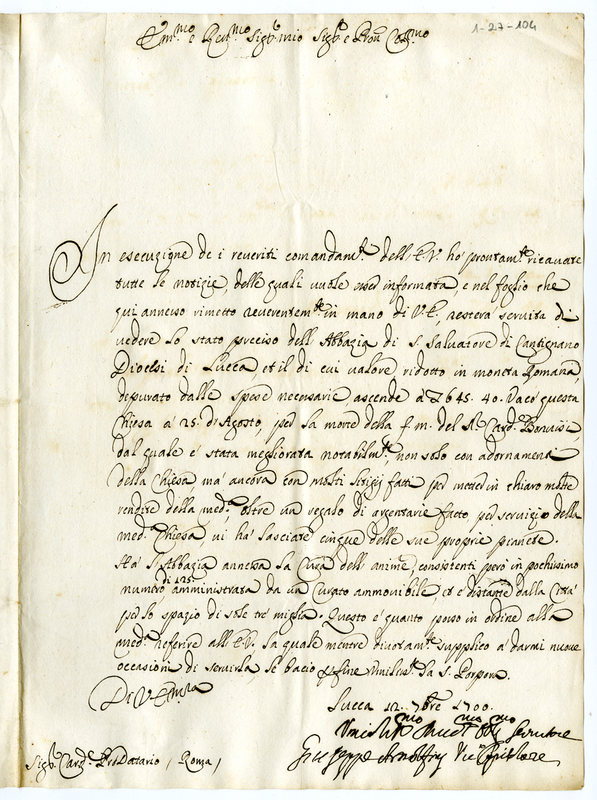 1-27-104
Em.mo e Rev.mo Sig.r mio Sig.r e Pron Col.mo
In esecuzione de i reveriti comandam.ti dell'E.V. hò prontam.te ricavate
tutte le notizie, delle quali vuole esser informata, e nel foglio che
qui annesso rimetto reverentem.te in mano di V.E., resterà servita di
vedere lo stato preciso dell'Abbazia di S. Salvatore di Cantignano
Diocesi di Lucca et il di cui valore ridotto in moneta Romana,
depurato dalle spese necessarie ascende à 645. 40. Vacò questa
Chiesa a' 25. di Agosto, per la morte della f. m. del S.r Card.e Bonvisi,
dal quale è stata megliorata notabilm.te, non solo con adornamenti
della Chiesa, mà ancora con molti litigij fatti per metter in chiaro molte
rendite della med.a, oltre un regalo di argentarie fatto per servizio della
med.a Chiesa vi hà lasciate cinque delle sue proprie pianete.
Hà l'Abbazia annessa la Cura dell'anime, consistenti però in pochissimo
numero di 125. amministrata da un Curato ammovibile, et è distante dalla Città
per lo spazio di sole tre miglia. Questo è quanto posso in ordine alla
med.a referire all'E.V. la quale mentre divotam.te supplico à darmi nuove
occasioni di servirla le bacio per fine umilm.te la S. Porpora.
Di V. Em.za
Lucca 12. 7bre 1700.
Umiliss.mo Devot.mo Obl.mo Servitore
Giuseppe Arnolfini
Sig.r Card.e ProDatario (Roma)